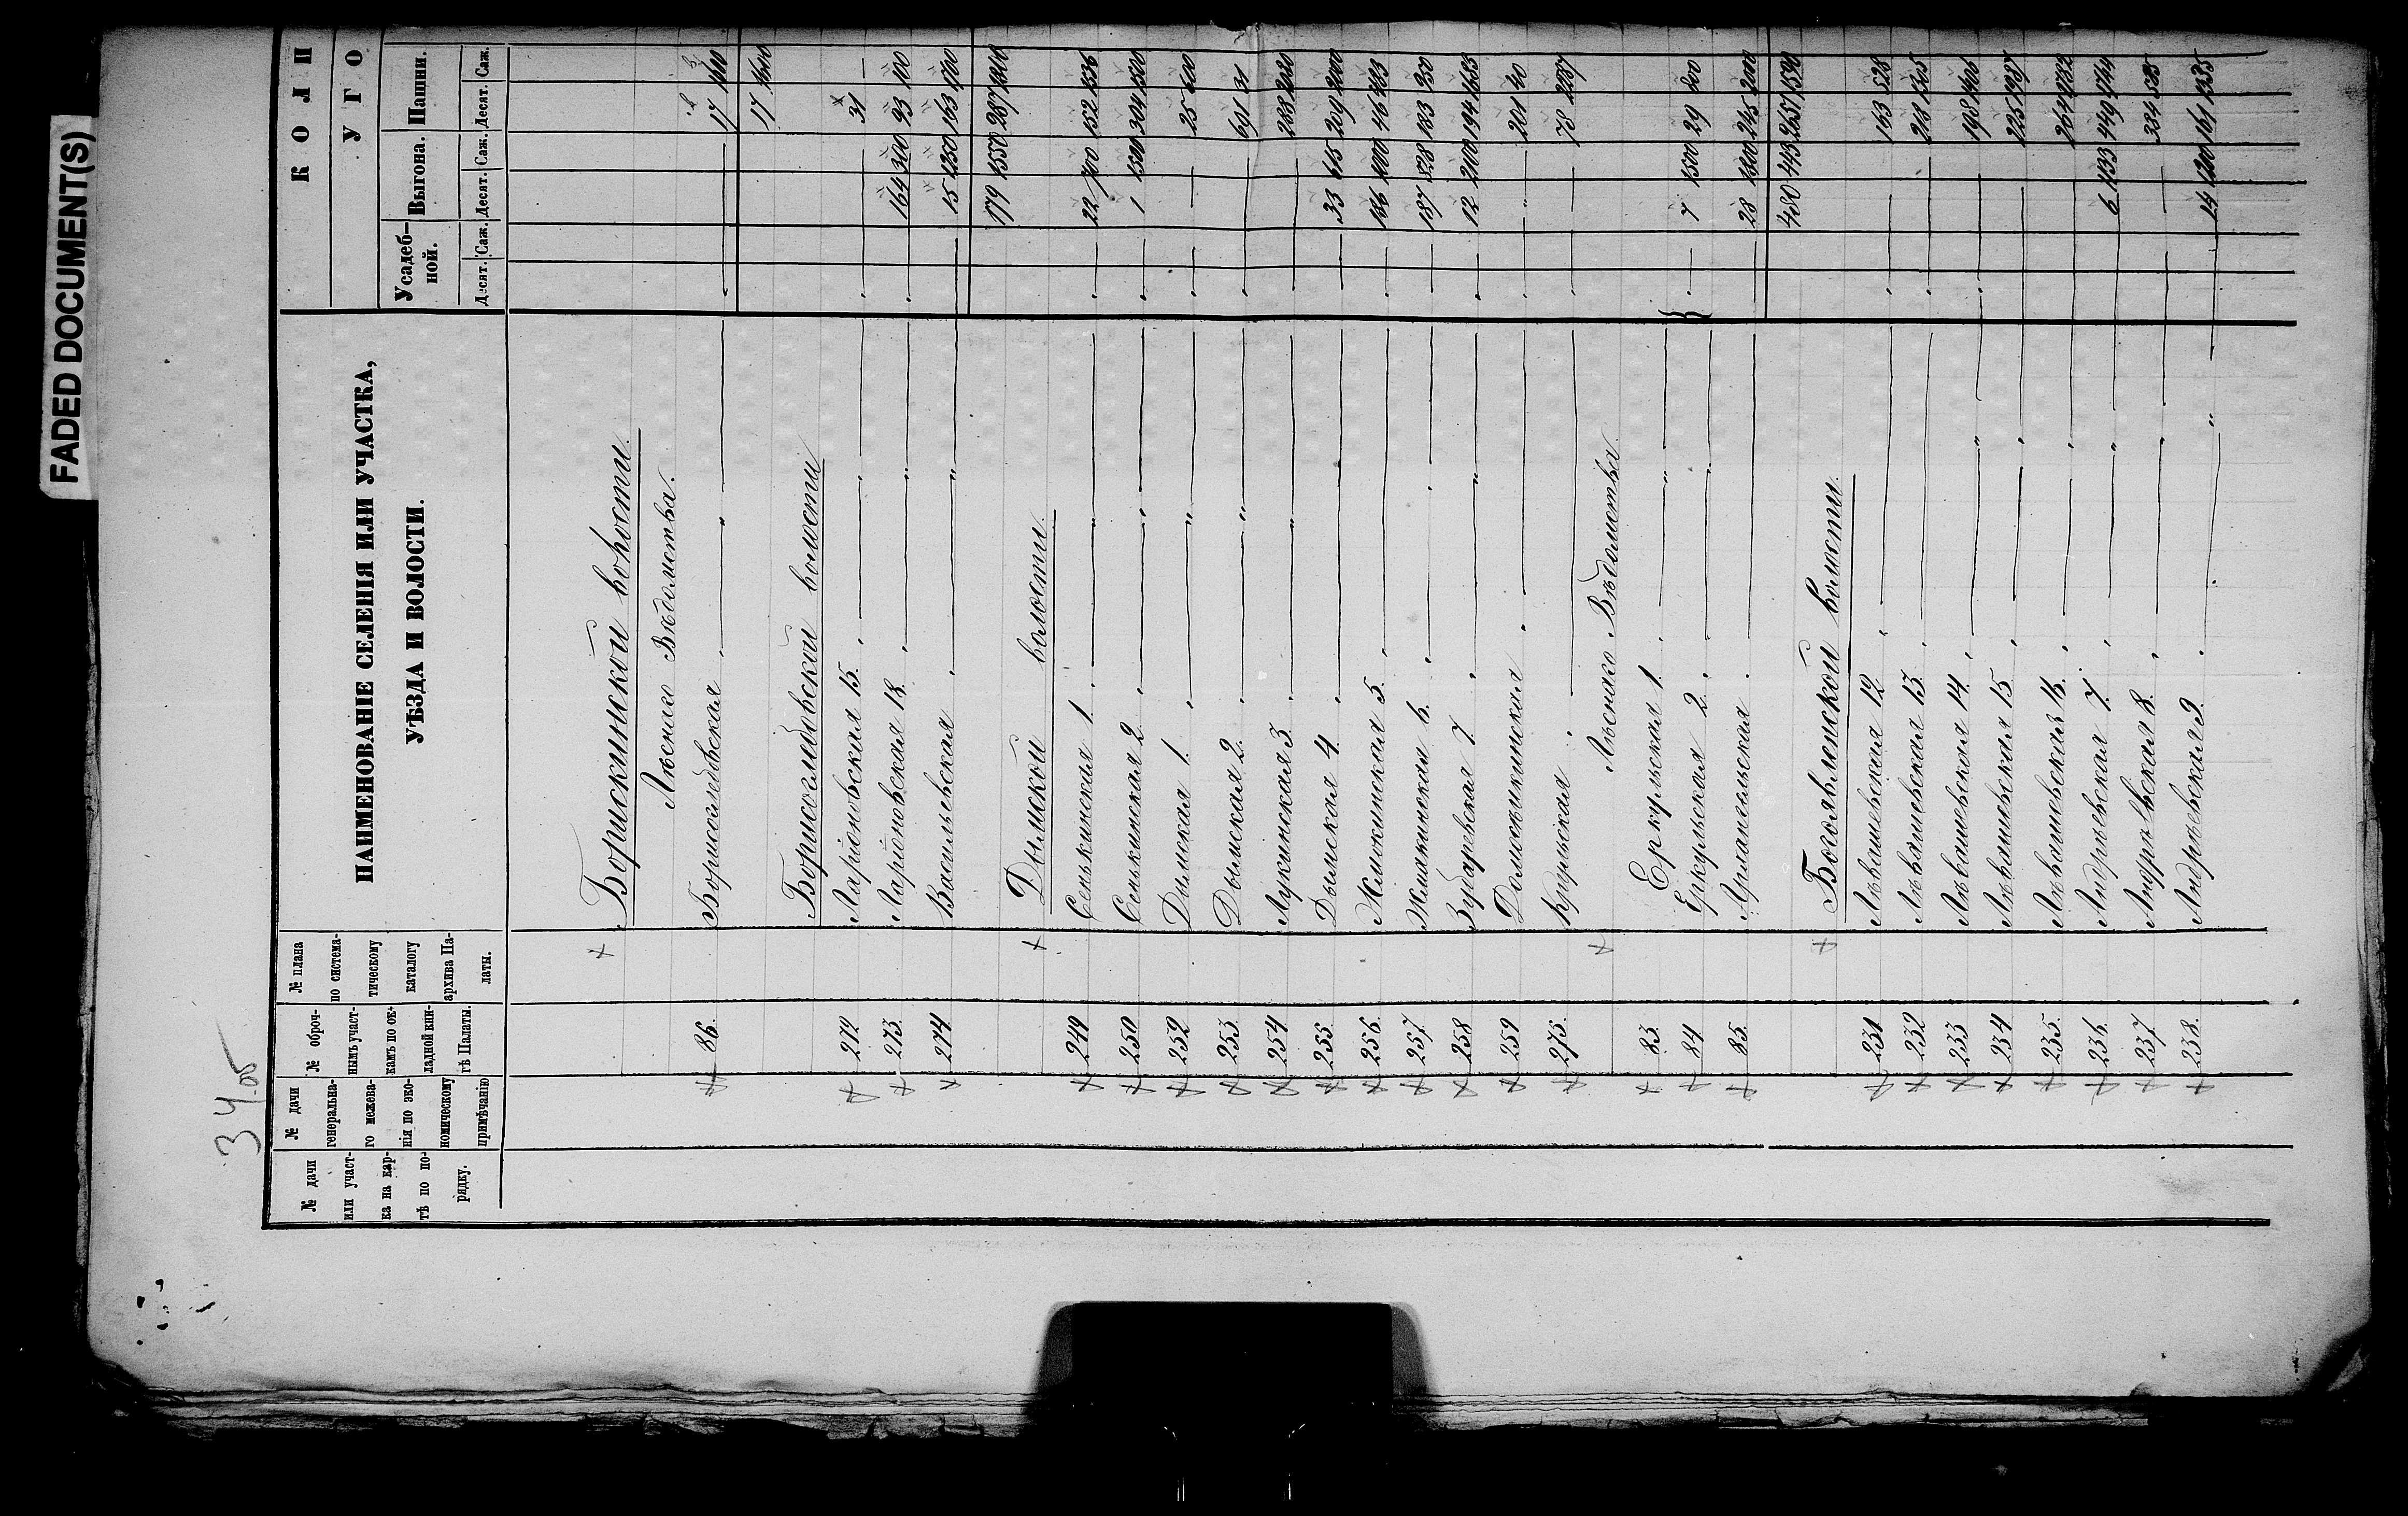 FADED DOCUMENT(S)
34об
К О Л И
У Г О
№ дачи или участка на картѣ по порядку.
№ дачи генеральнаго межеванія по экономическому примѣчанію
№ оброчнымъ участкамъ по окладной книгѣ Палаты.
№ плана по систематическому каталогу архива Палаты.
НАИМЕНОВАНІЕ СЕЛЕНІЯ ИЛИ УЧАСТКА,
УѢЗДА И ВОЛОСТИ.
Усадебной. Выгона. Пашни.
Десят. Саж. Десят. Саж. Десят. Саж.
Борискинской волости.
Лѣснаго Вѣдомства.
86. Борисоглебовская 17
17 1600
Борисоглебовской волости
272 Ларіоновская 15. 31 —
273. Ларіоновская 18. 164 300 93 100
274 Васильевская 15 1250 163 1700
179 1550 287 1800
Дымской волости.
249 Сенькинская 1. 22 700 152 1536
250 Сенькинская 2. 1 1500 304 1500
252 Дымская 1. 25 600
253. Дымская 2. 601 31
254 Лукинская 3. 288 2020
255. Дымская 4. 33 615 209 2000
256. Жмакинская 5. 186 1000 46 423
257. Жмакинская 6. 187 828 183 230
258 Зубаревская 7. 12 2100 194 1683
259 Домосѣкинская 201 40
275. Крульская 78 2237
Лѣснаго Вѣдомства.
83. Еркульская 1.
84 Еркульская 2. 7 1500 29 800
85. Архангельская 28 1800 245 2000
480 443 2657 1590
Богоявленской волости.
231 Лѣвашевская 12. 163 528
232 Лѣвашевская 13. 218 1305
233 Лѣвашевская 14. 198 1406
234 Лѣвашевская 15 225 1987
235. Лѣвашевская 16. 264 1782
236. Андреевская 7. 6 1133 449 1744
237 Андреевская 8. 334 525
238. Андреевская 9. 14 1200 161 1335